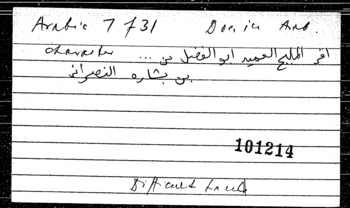 Arabic 7 f 31 Don in Arab.
character اقر المليح العميد ابو الفضل بن ...
بن بشاره النصراني
101214
Difficult